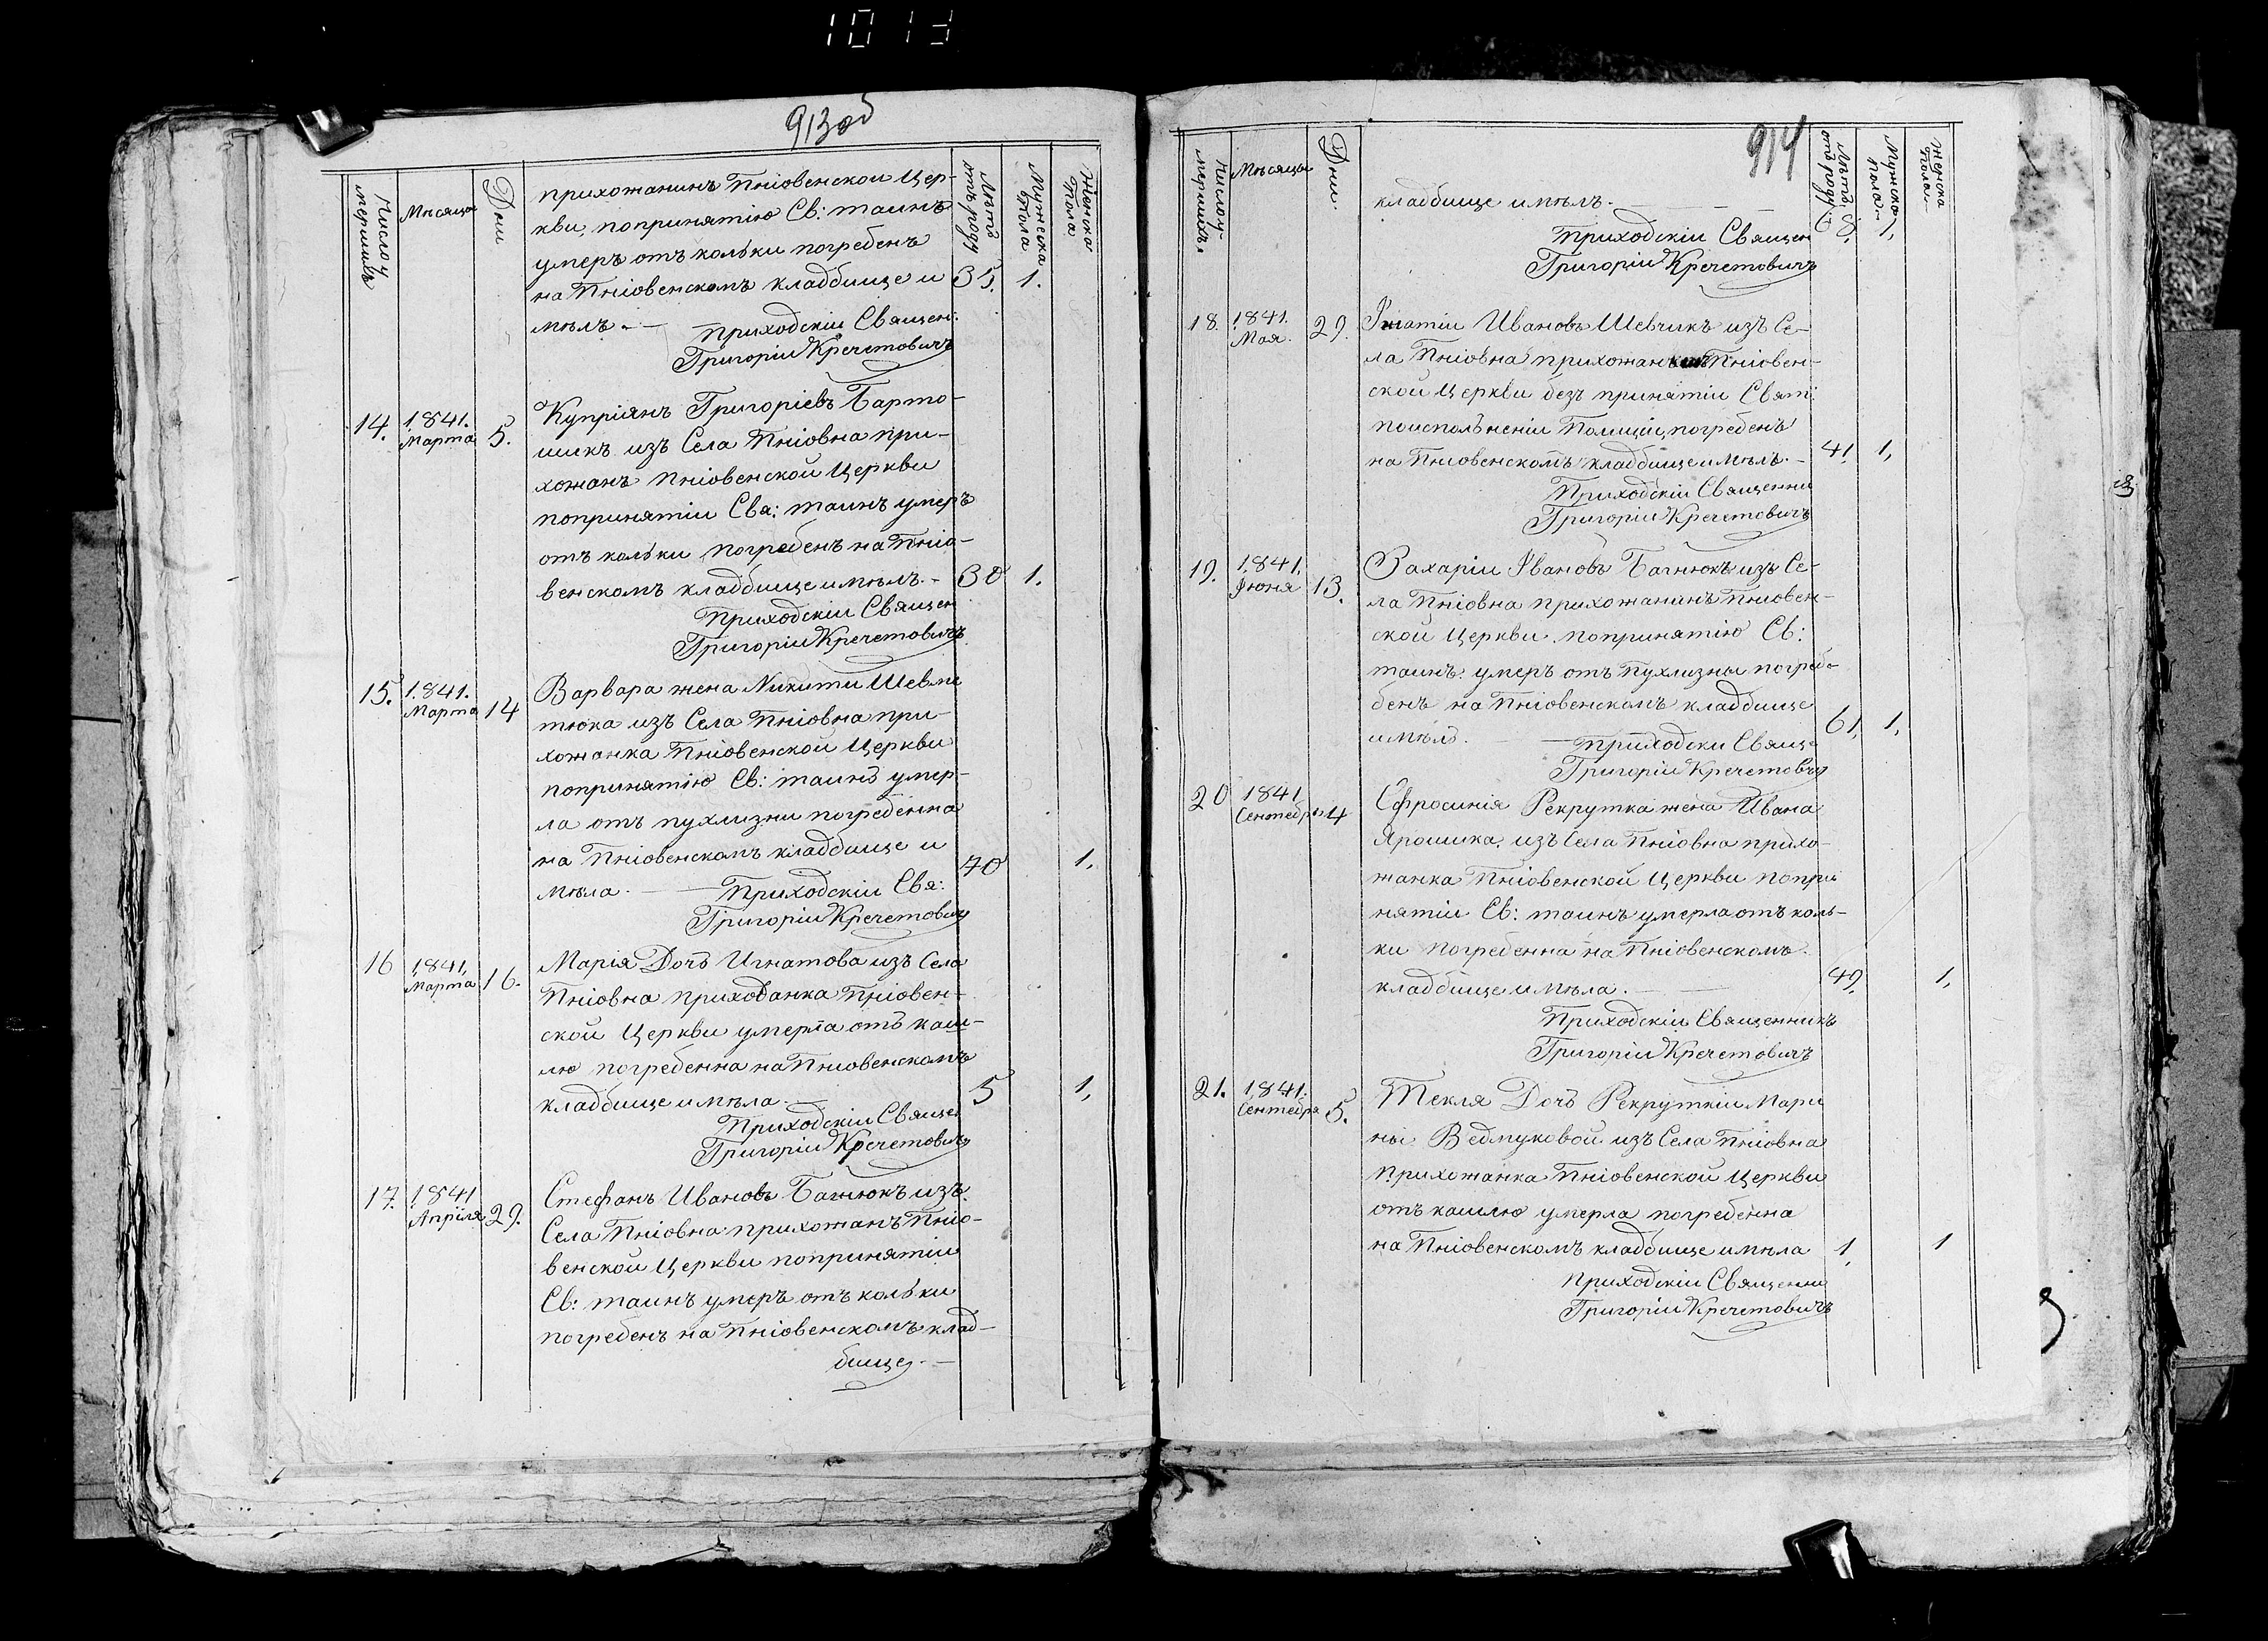 1013
913об
Число у
мершихъ
Мѣсяцы
Дни
Лѣтъ
отъ роду
Мужеска
Пола
Женско
Пола
прихожанинъ Пніовенской Цер-
кви, попринятію Св: таинъ
умеръ отъ кольки погребенъ
на Пніовенскомъ кладбище и 35. 1.
мѣлъ. — Приходскіи Священ:
Григоріи Кречетовичъ
14. 1841. Марта 5. Купріянъ Григоріевъ Барто-
шикъ изъ Села Пніовна при-
хожанъ Пніовенской Церкви
попринятіи Свя: таинъ умеръ
отъ кольки погребенъ на Пніо-
венскомъ кладбище имѣлъ. - 30 1.
Приходскіи Священ
Григоріи Кречетовичъ
15. 1841. Марта 14 Варвара жена Никити Шевче
тюка изъ Села Пніовна при-
хожанка Пніовенской Церкви
попринятію Св: таинъ умер-
ла отъ пухлизни погребенна
на Пніовенскомъ кладбище и 70 1.
мѣла. — Приходскіи Свя:
Григоріи Кречетовичъ
16 1841. Марта 16. Марія Дочъ Игнатова изъ Села
Пніовна приходанка Пніовен-
ской Церкви умерла отъ каш-
лю погребенна на Пніовенскомъ
кладбище имѣла. — 5 1,
Приходскіи Священ
Григоріи Кречетовичъ
17. 1841 Апріля 29. Стефанъ Ивановъ Багнюкъ изъ
Села Пніовна прихожанъ Пніо-
венской Церкви попринятіи
Св: таинъ умеръ отъ кольки
погребенъ на Пніовенскомъ клад-
бище. —
914
Числоу-
мершихъ
Мѣсяцы
Дни.
Лѣтъ
отъ роду
Мужско
пола
Женска
Пола
кладбище имѣлъ. — 68. 1,
Приходскіи Священ
Григоріи Кречетовичъ
18. 1841. Мая. 29. Игнатіи Ивановъ Шевчикъ изъ Се-
ла Пніовна прихожан Пніовен-
ской Церкви безъ принятіи Свят:
поисполненіи Полиціи, погребенъ
на Пніовенскомъ кладбище имѣлъ. - 41, 1,
Приходскіи Священни
Григоріи Кречетовичъ
19. 1841. Іюня 13. Захаріи Івановъ Багнюкъ изъ Се-
ла Пніовна прихожанинъ Пніовен-
ской Церкви попринятію Св:
таинъ умеръ отъ пухлизны погребе
бенъ на Пніовенскомъ кладбище
имѣлъ. — Приходски Священ 61, 1,
Григоріи Кречетовичъ
20 1841. Сентебря 4 Єфросинія Рекрутка жена Ивана
Ярошика, изъ Села Пніовна прихо-
жанка Пніовенской Церкви попри
нятіи Св: таинъ умерла отъ коль-
ки погребенна на Пніовенскомъ
кладбище имѣла. — 49, 1,
Приходскіи Священникъ
Григоріи Кречетовичъ
21. 1841. Сентебря 5. Текля Дочъ Рекруткіи Мари
ны Ведмуковой изъ Села Пніовна
прихожанка Пніовенской Церкви
отъ кашлю умерла погребенна
на Пніовенскомъ кладбище имѣла 1, 1
Приходскіи Священни
Григоріи Кречетовичъ